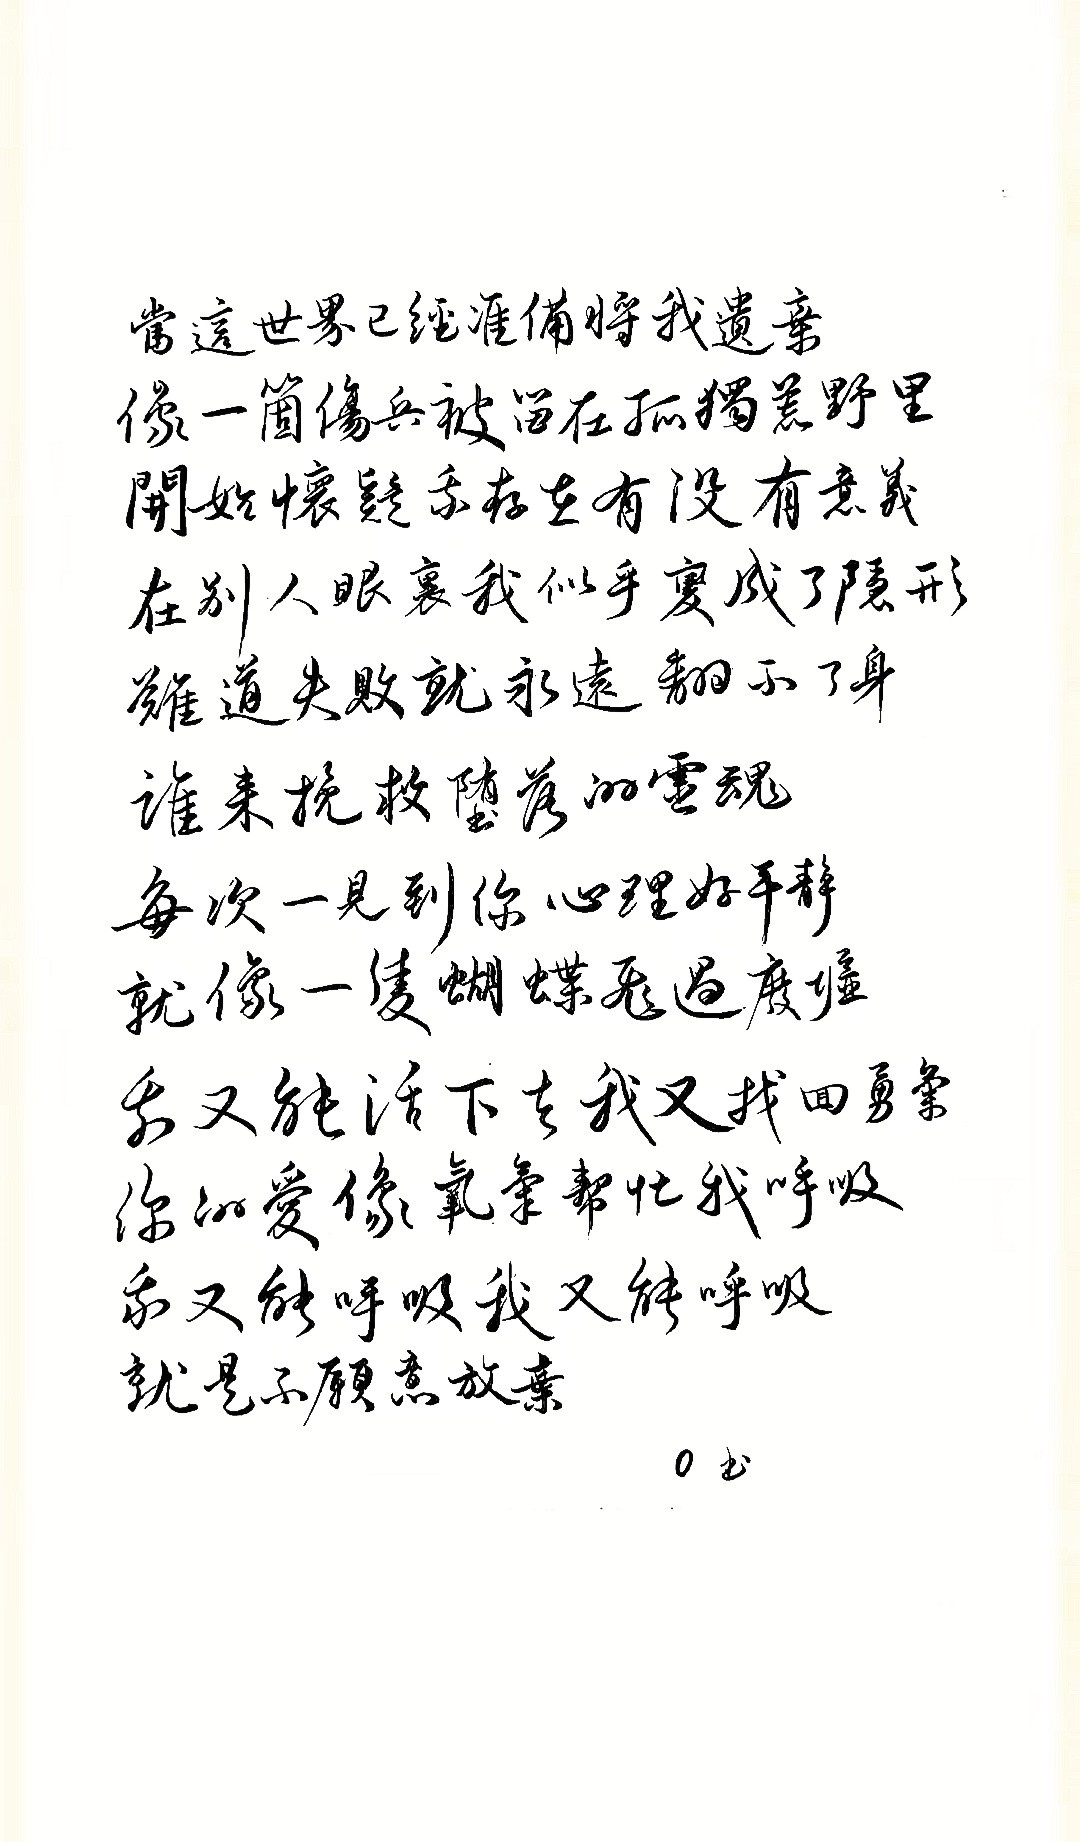 當這世界已經准備將我遺棄
像一箇傷兵被留在孤獨荒野里
開始懷疑我存在有没有意義
在別人眼裏我似乎變成了隱形
難道失敗就永遠翻不了身
誰来挽救墮落的靈魂
每次一見到你心理好平靜
就像一隻蝴蝶飛過廢墟
我又能活下去我又找回勇氣
你的愛像氧氣幫忙我呼吸
我又能呼吸我又能呼吸
就是不願意放棄
O 书